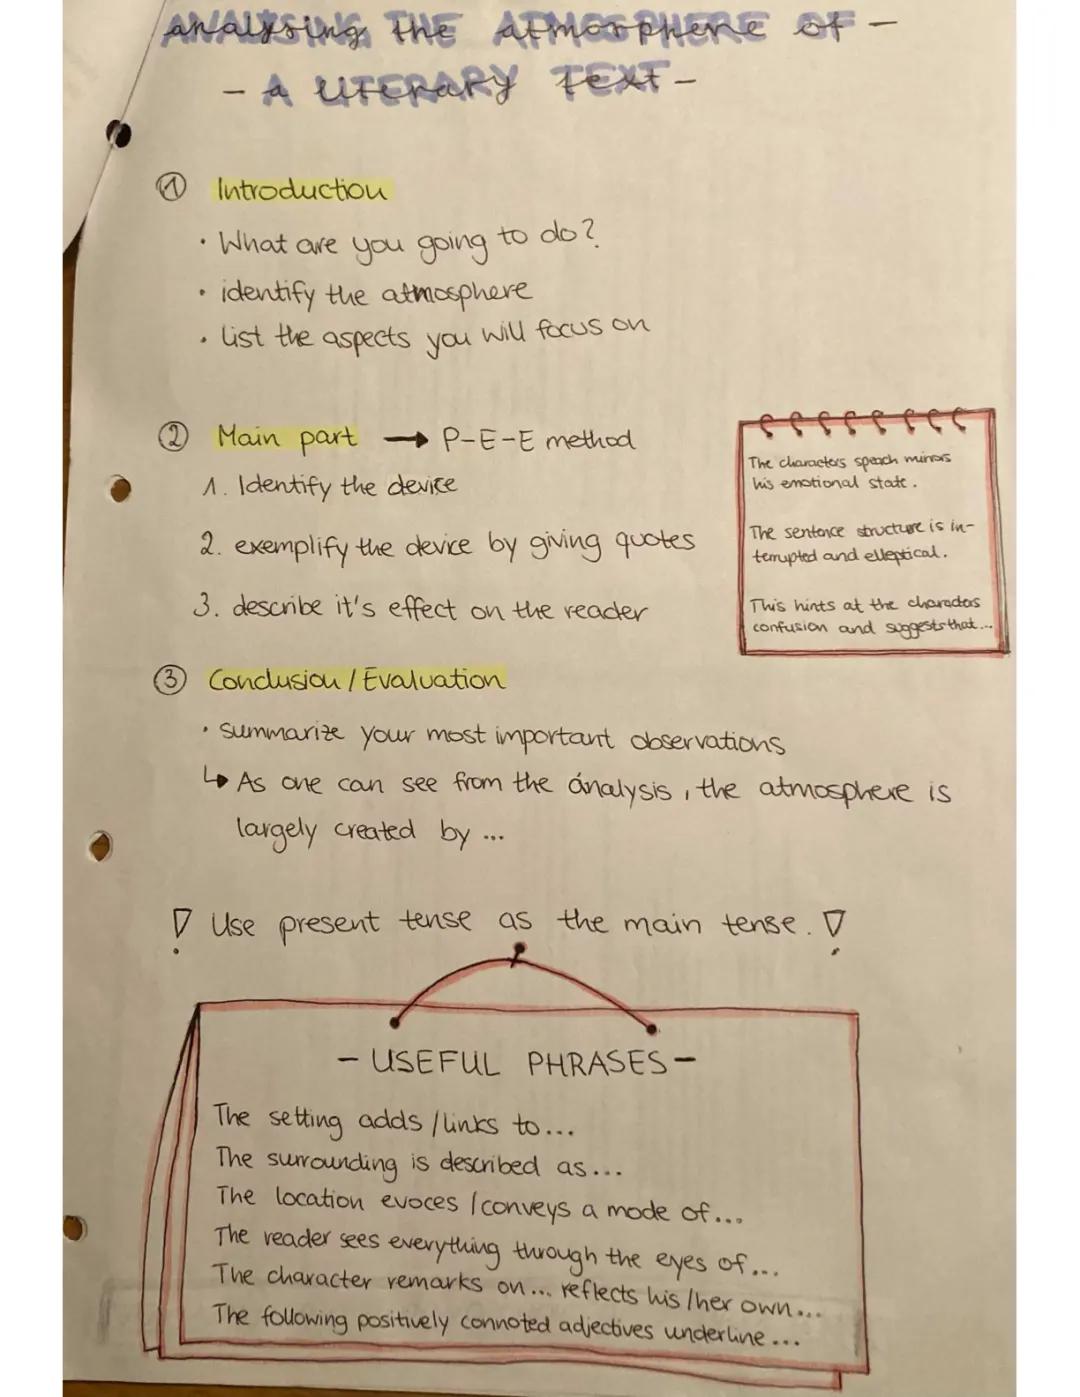 analysing the atmosphere of -
- a literary text -
① Introduction
• What are you going to do?
• identify the atmosphere
• list the aspects you will focus on
② Main part → P-E-E method
1. Identify the device
2. exemplify the device by giving quotes
3. describe it's effect on the reader
The characters speach mirrors
his emotional state.
The sentence structure is in-
terrupted and elleptical.
This hints at the charactors
confusion and suggests that...
③ Conclusion / Evaluation
• summarize your most important observations
↳ As one can see from the analysis, the atmosphere is
largely created by ...
! Use present tense as the main tense. !
- USEFUL PHRASES -
The setting adds / links to...
The surrounding is described as...
The location evoces / conveys a mode of...
The reader sees everything through the eyes of...
The character remarks on... reflects his / her own...
The following positively connoted adjectives underline...